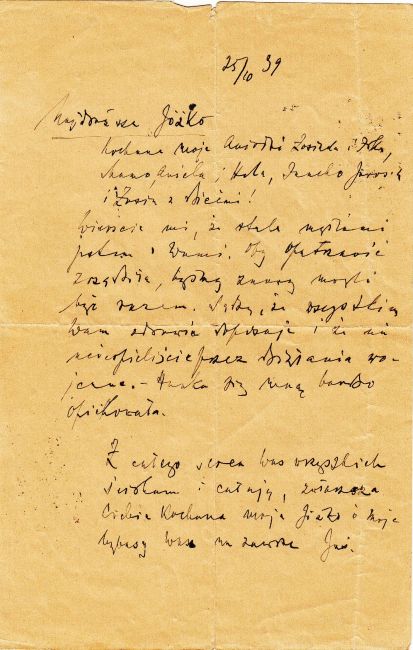 25/10 39
Najdroższa Józko
Kochana moja Zosieńko i
Mamo, Anielu, Hela, Janeczko
i Zosia z Dziećmi!
Wierzcie mi, że stale myślami
jestem z Wami. Oby Opatrzność
zrządziła, byśmy znowu mogli
być razem. Sądzę, że wszystkim
Wam zdrowie dopisuje i że nie
ucierpieliście przez działania wo-
jenne. - Hanka się mną bardzo
opiekowała.
Z całego serca Was wszystkich
ściskam i całuję, zwłaszcza
Ciebie Kochana moja Józko i moje
Was na zawsze Jaś.